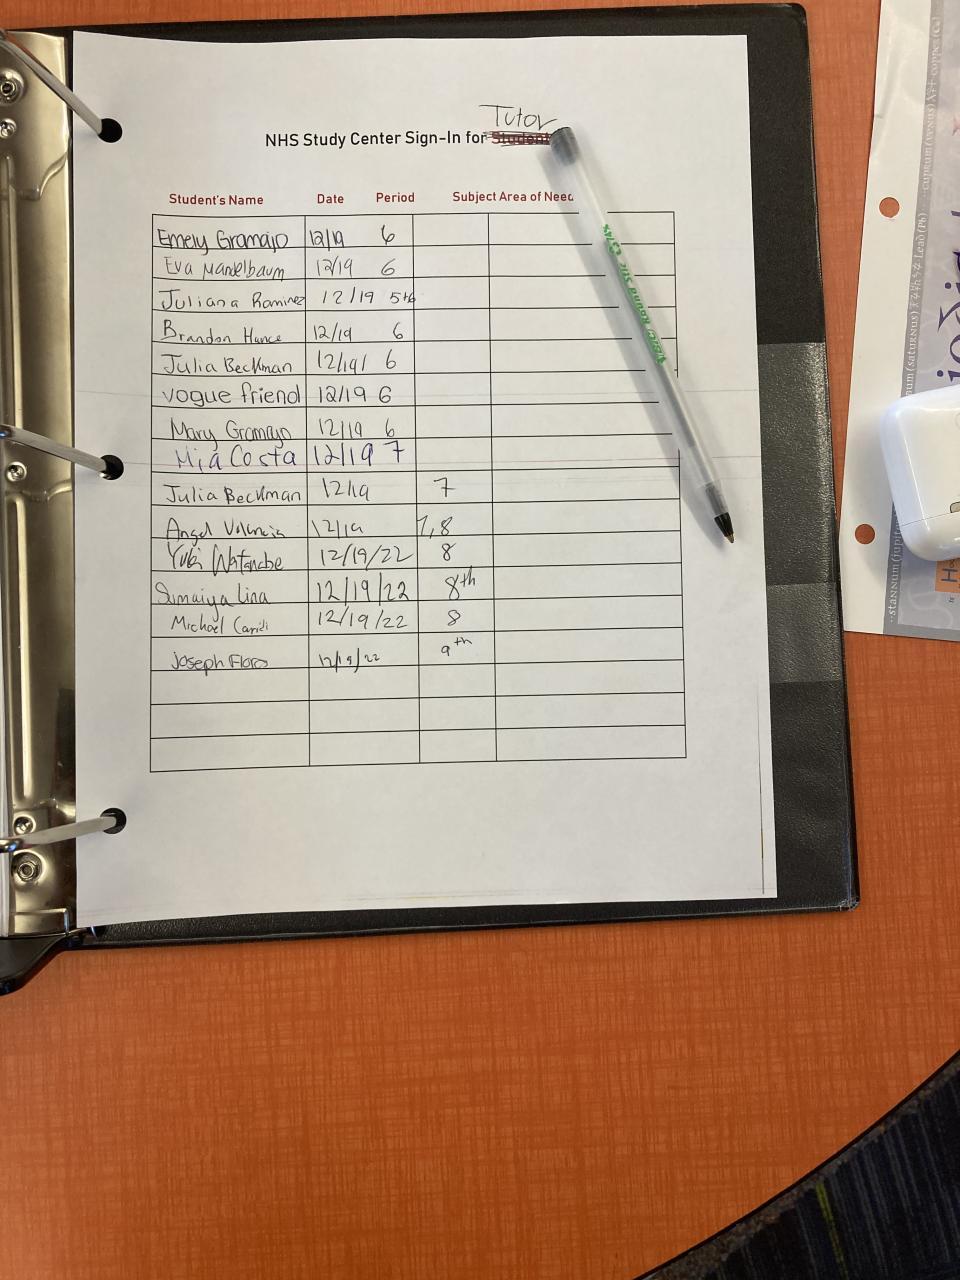 Tutor
NHS Study Center Sign-In for Student
Student's Name Date Period Subject Area of Need
Emely Gramajo 12/19 6
Eva Mandelbaum 12/19 6
Juliana Ramirez 12/19 5th
Brandon Hance 12/19 6
Julia Beckman 12/19/ 6
vogue friend 12/19 6
Mary Gramajo 12/19 6
Mia Costa 12/19 7
Julia Beckman 12/19 7
Angel Valencia 12/19 7,8
Yuki Watanabe 12/19/22 8
Sumaiya Lina 12/19/22 8th
Michael 12/19/22 8
Joseph Flores 12/19/22 9th